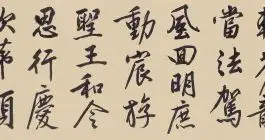 當法駕
風回明庶
動宸游
聖王和令
思行慶